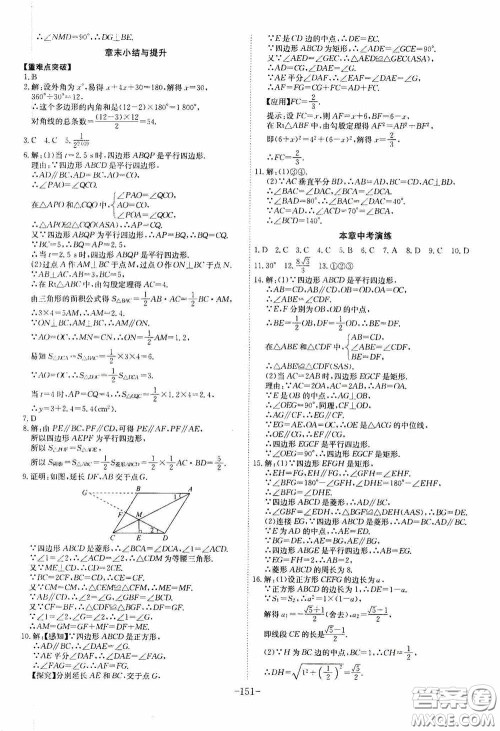 ∴∠NMD=90°,∴DG⊥BE.
章末小结与提升
【重难点突破】
1.B
2.解:设外角为x°,易得x+4x+30=180,解得x=30,
360°÷30°=12.
∴这个多边形的内角和是(12-2)×180°=1 800°,
对角线的总条数=(12-3)×12/2=54.
3.C 4.C
6.解:(1)当t=2.5 s时,四边形ABQP是平行四边形.
理由:∵四边形ABCD是平行四边形,
∴AD∥BC,AD=BC,AO=CO,
∴∠PAO=∠QCO.
在△APO和△CQO中,{∠PAO=∠QCO, AO=CO, ∠POA=∠QOC,
∴△APO≌△CQO(ASA),∴AP=CQ.
∵四边形ABQP为平行四边形,∴AP=BQ,∴BQ=CQ.
∴当t=2.5 s时,四边形ABQP是平行四边形.
(2)过点A作AM⊥BC于点M,过点O作ON⊥BC于点N.
∵AB⊥AC,∴∠BAC=90°.
在Rt△ABC中,由勾股定理得AC=4.
由三角形的面积公式得S△BAC=1/2AB·AC=1/2BC·AM,
∴3×4=5AM,∴AM=2.4.
∵AO=OC,∴MN=CN,∴ON=1/2AM=1.2,
易知S△DCA=S△BAC=1/2×3×4=6.
∵AO=OC,
当t=4时,AP=CQ=4,∴S△OCQ=1/2×1.2×4=2.4,
∴y=3+2.4=5.4(cm²).
7.D
8.解:由PE∥BC,PF∥CD,可得PE∥AF,PF∥AE,
所以四边形AEPF为平行四边形,
9.证明:如图,延长DF,AB交于点G.
∵四边形ABCD是菱形,∴∠BCA=∠DCA,∴∠1=∠ACD.
∵∠1=∠2,∴∠2=∠ACD,∴△MDC为等腰三角形.
又∵ME⊥CD,∴CD=2CE.
∵BC=CD,∴CF=CE.
又∵CM=CM,∴△CEM≌△CFM,∴ME=MF.
又∵AB∥CD,∴∠2=∠G,∠GBF=∠DCF.
又∵CF=BF,∴△CDF≌△BGF,∴DF=GF.
∵∠1=∠2,∠G=∠2,∴∠1=∠G,∴AM=GM,
∴AM=GM=GF+MF=DF+ME.
10.解:【感知】∵四边形ABCD是正方形,
∴AD∥BC,∴∠DAE=∠G.
∵AE平分∠DAF,∴∠DAE=∠EAF,
∴∠G=∠EAF,∴AF=GF.
【探究】分别延长AE和BC,交于点G.
∵E是CD边的中点,∴DE=CE.
∵四边形ABCD为矩形,∴∠D=∠GCE=90°.
又∵∠AED=∠GEC,∴△AED≌△GEC(ASA),
∴AD=CG.
∵AE平分∠DAF,∴∠DAE=∠EAF,
∴AF=FG=CG+FC=AD+FC.
【应用】FC=2/3.
提示:设FC=x,则AF=x+6,BF=6-x,
在Rt△ABF中,由勾股定理得AF²=AB²+BF²,
即(6+x)²=4²+(6-x)²,解得x=2/3,
∴FC=2/3.
11.解:(1)③④.
(2)∵AC垂直平分BD,∴AB=AD,CB=CD.
又∵AC=AC,∴△ABC≌△ADC,∴∠ABC=∠ADC.
∵∠BAD=80°,∴∠BAC=∠DAC=40°,
∴∠ACB=∠ACD=70°,
∴∠BCD=140°.
本章中考演练
1.D 2.C 3.C 4.B 5.A 6.D 7.C 8.D 9.C 10.D
11.30° 12.8√3/3 13.①②③
14.解:(1)∵四边形ABCD是平行四边形,
∴AB=CD,AB∥CD,OB=OD,OA=OC,
∴∠ABE=∠CDF.
∵E,F分别为OB,OD的中点,
∴BE=1/2OB,DF=1/2OD,∴BE=DF.
在△ABE和△CDF中,{AB=CD, ∠ABE=∠CDF, BE=DF,
∴△ABE≌△CDF(SAS).
(2)当AC=2AB时,四边形EGCF是矩形.
理由:∵AC=2OA,AC=2AB,∴AB=OA.
∵E是OB的中点,∴AG⊥OB,
∴∠OEG=90°,同理可得CF⊥OD,
∴AG∥CF,∴EG∥CF.
∵EG=AE,OA=OC,∴OE是△ACG的中位线,
∴OE∥CG,∴EF∥CG,
∴四边形EGCF是平行四边形.
∵∠OEG=90°,∴四边形EGCF是矩形.
15.解:(1)∵四边形EFGH是矩形,
∴EH=FG,EH∥FG,∴∠GFH=∠EHF.
∵∠BFG=180°-∠GFH,∠DHE=180°-∠EHF,
∴∠BFG=∠DHE.
∵四边形ABCD是菱形,∴AD∥BC,
∴∠GBF=∠EDH,∴△BGF≌△DEH(AAS),∴BG=DE.
(2)连接EG,∵四边形ABCD是菱形,∴AD∥BC,AD=BC.
∵E为AD中点,∴AE=ED.
∵BG=DE,∴AE=BG,AE∥BG,
∴四边形ABGE是平行四边形,∴AB=EG.
∵EG=FH=2,∴AB=2,
∴菱形ABCD的周长为8.
16.解:(1)设正方形CEFG的边长为a.
∵正方形ABCD的边长为1,∴DE=1-a.
∵S₁=S₂,∴a²=1×(1-a),
即线段CE的长是(√5-1)/2.
(2)∵H为BC边的中点,BC=1,∴CH=1/2,
∴DH=√(1²+(1/2)²)=√5/2.
-151-